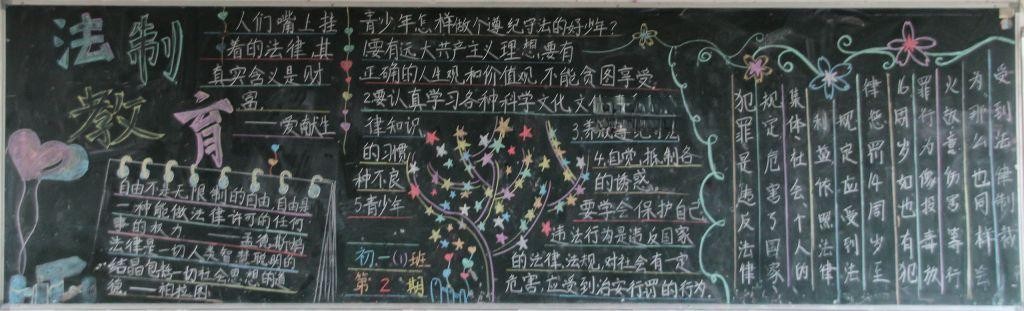 法制
教育
人们嘴上挂
着的法律,其
真实含义是财
富.
——爱献生
自由不是无限制的自由,自由是
一种能做法律许可的任何
事的权力 ——孟德斯鸠
法律是一切人类智慧聪明的
结晶包括一切社会思想的道
德.——柏拉图
青少年怎样做个遵纪守法的好少年?
1要有远大共产主义理想,要有
正确的人生观,和价值观,不能,贪图享受.
2.要认真学习各种科学文化,文化
律知识
3养成遵纪
的习惯
4.自觉,抵制各
种不良
的诱惑.
5青少年
要学会保护自己
初一(1)班
第2期
违法行为是违反国家
的法律,法规,对社会有一定
危害,应受到治安行罚的行为.
犯罪是违反法律
规定危害了国家
集体社会个人的
利益依照法律
规定应受到法
律惩罚14周岁至
16周岁如也有犯
罪行为像投毒放
火故意伤害等行
为那么也同样会
受到法律制裁